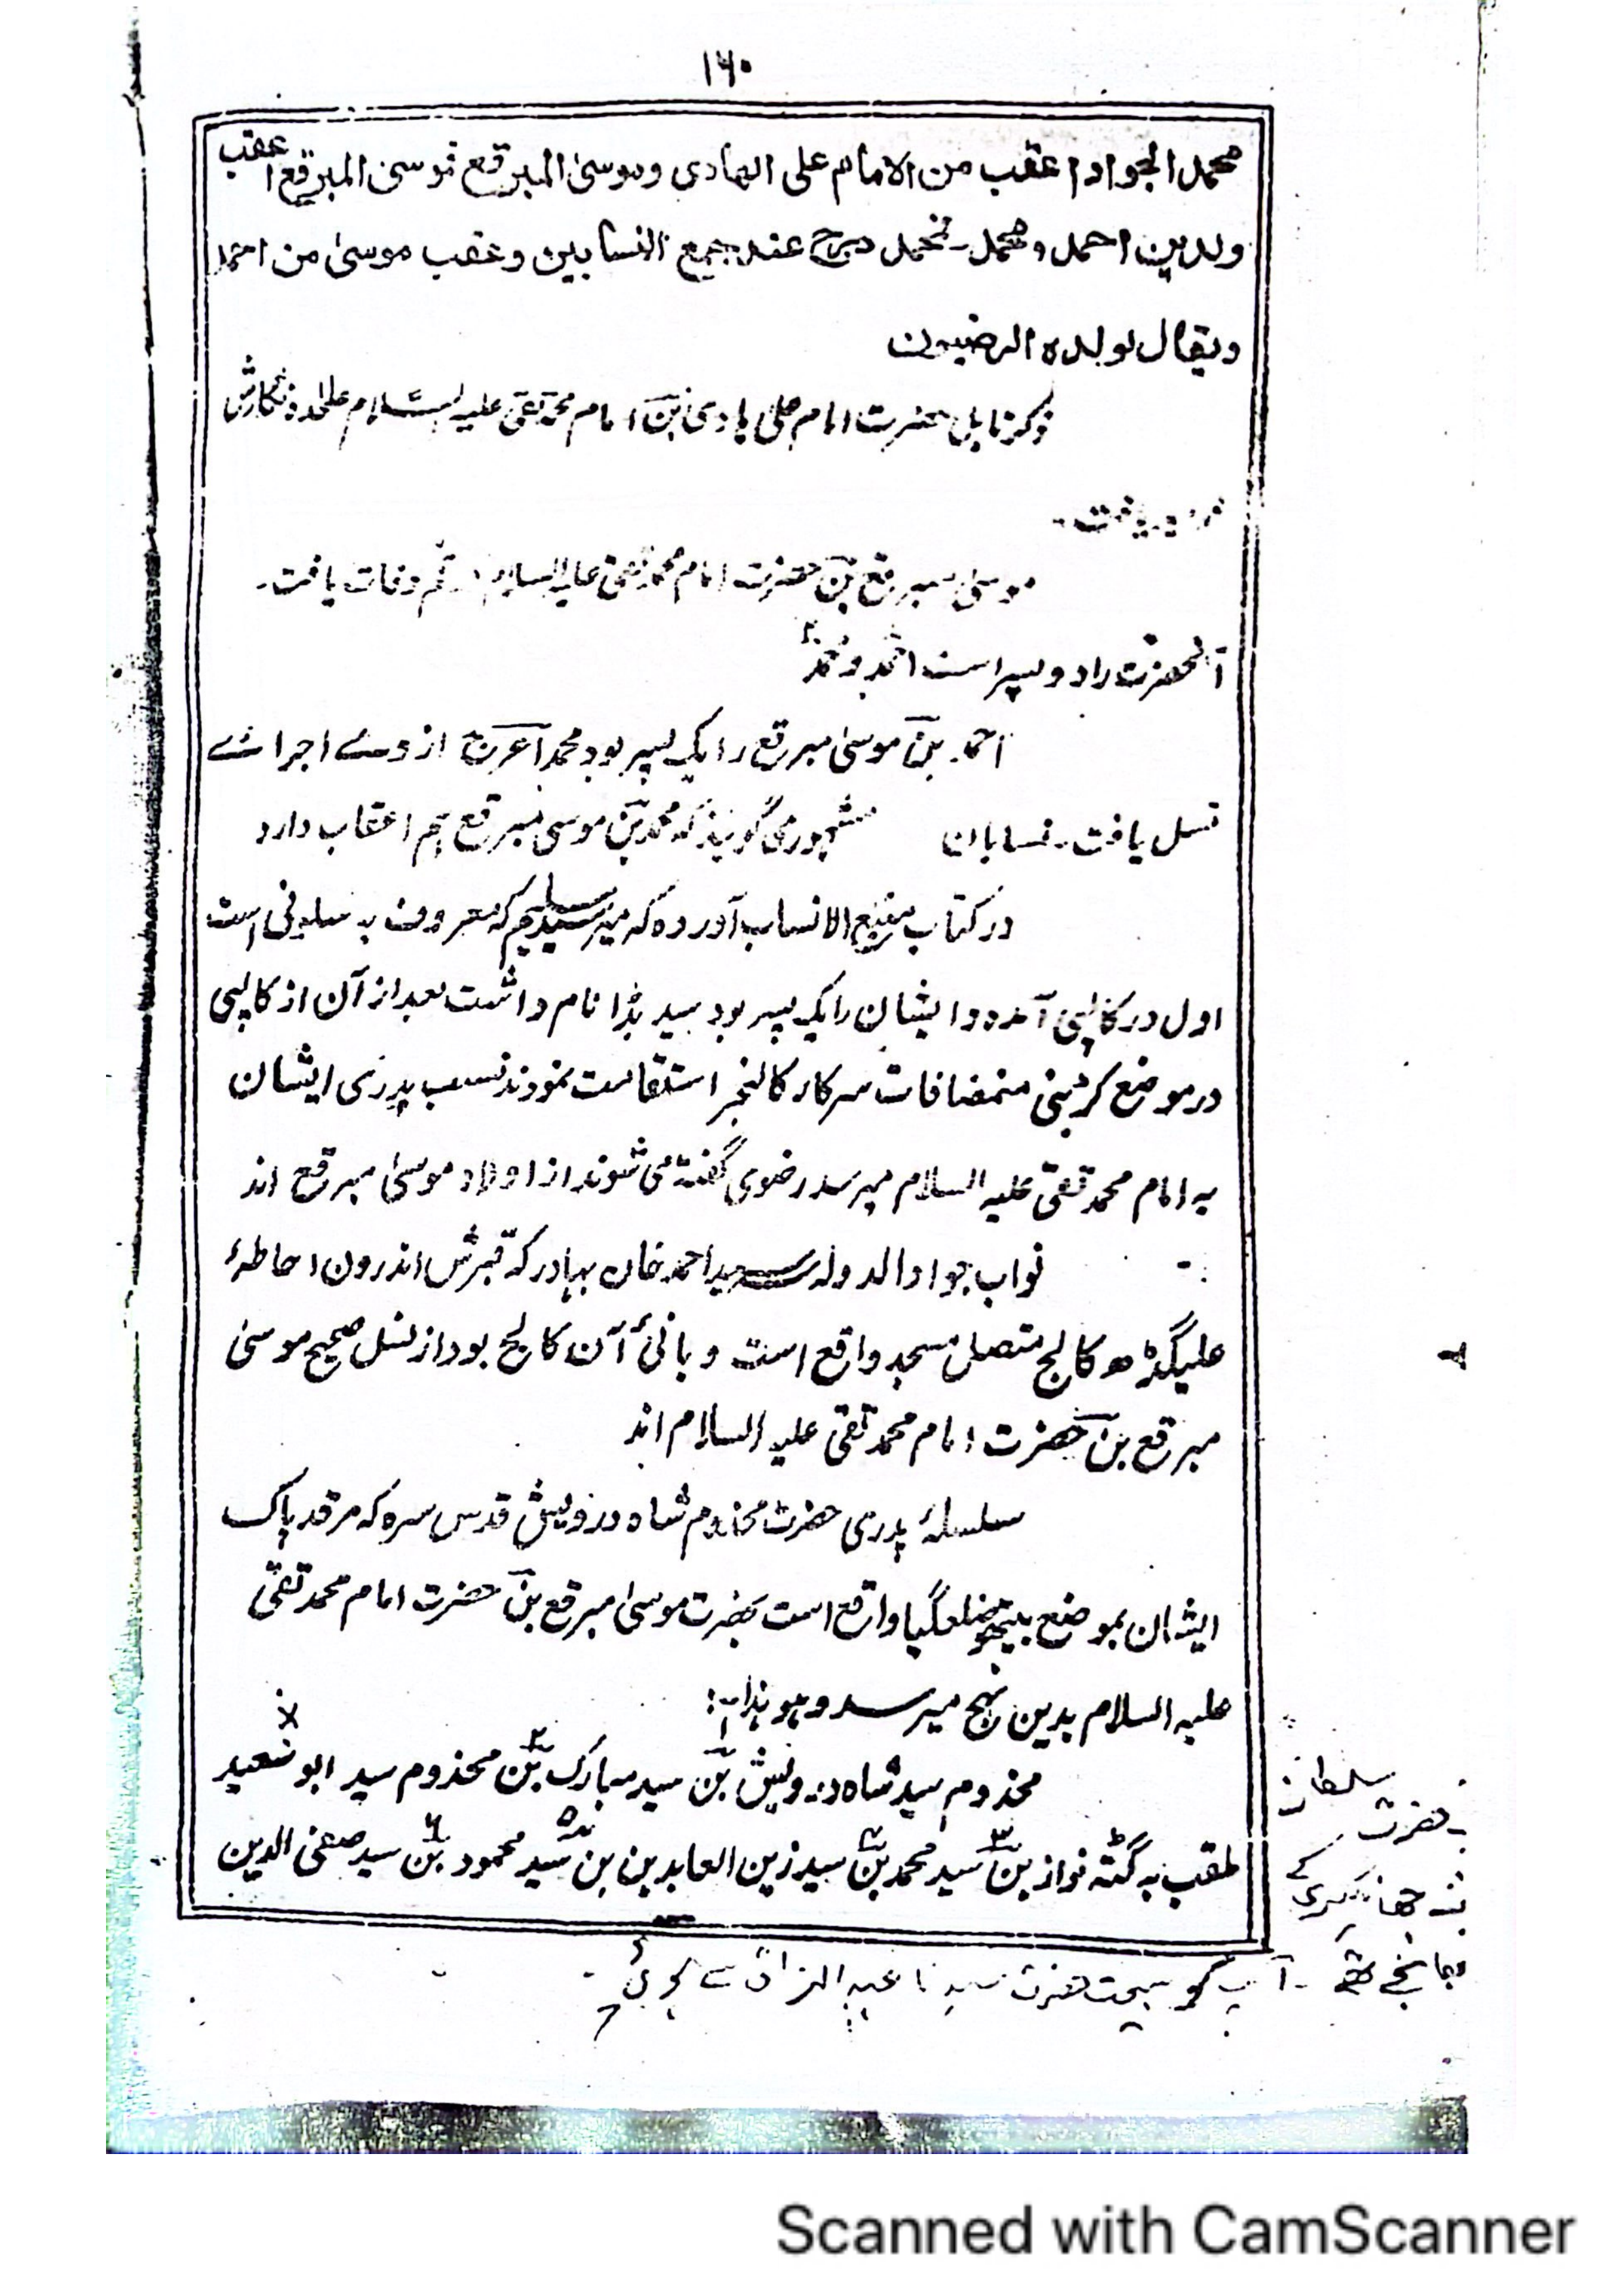 ۱۶۰
محمد الجواد اعقب من الامام علی الهادی وموسیٰ المبرقع فموسیٰ المبرقع اعقب
ولدین احمد ومحمد۔ فمحمد درج عند جمیع النسابین وعقب موسیٰ من احمد
ویقال لولده الرضیون
ذکر حضرت امام علی هادی بن امام محمد تقی علیه السلام علٰحده نگارش
موسیٰ مبرقع بن حضرت امام محمد تقی علیه السلام قم وفات یافت۔
آنحضرت را دو پسر است احمد و محمد
احمد بن موسیٰ مبرقع را یک پسر بود محمد اعرج از وے اجرائے
نسل یافت۔ نسابان مشهور می گویند که محمد بن موسیٰ مبرقع هم اعقاب دارد
در کتاب منبع الانساب آورده که میر سید که معروف به است
اول در کالپی آمده و ایشان را یک پسر بود سید بڈا نام داشت بعد از آن از کالپی
در موضع منمضافات سرکار کالنجر استقامت نمودند نسب پدری ایشان
به امام محمد تقی علیه السلام میرسد رضوی گفته می شوند از اولاد موسیٰ مبرقع اند
نواب جواد الدوله سید احمد خان بهادر که قبرش اندرون احاطۂ
علیگڈھ کالج متصل مسجد واقع است و بانیٔ آن کالج بود از نسل صحیح موسیٰ
مبرقع بن حضرت امام محمد تقی علیه السلام اند
سلسلۂ پدری حضرت مخدوم شاه درویش قدس سره که مرقد پاک
ایشان بموضع بیتھو ضلع گیا واقع است بحضرت موسیٰ مبرقع بن حضرت امام محمد تقی
علیه السلام بدین نهج میرسد و هو هذا:
مخدوم سید شاه درویش بن ۱ سید مبارک بن ۲ مخدوم سید ابو سعید
ملقب به گٹه نواز بن ۳ سید محمد بن ۴ سید زین العابدین بن ۵ سید محمود بن ۶ سید صفی الدین
سلطان
حضرت
جهانگیری کے
بھانجے تھے ۔ آپ کو بیعت حضرت سیدنا عبد الرزاق سے